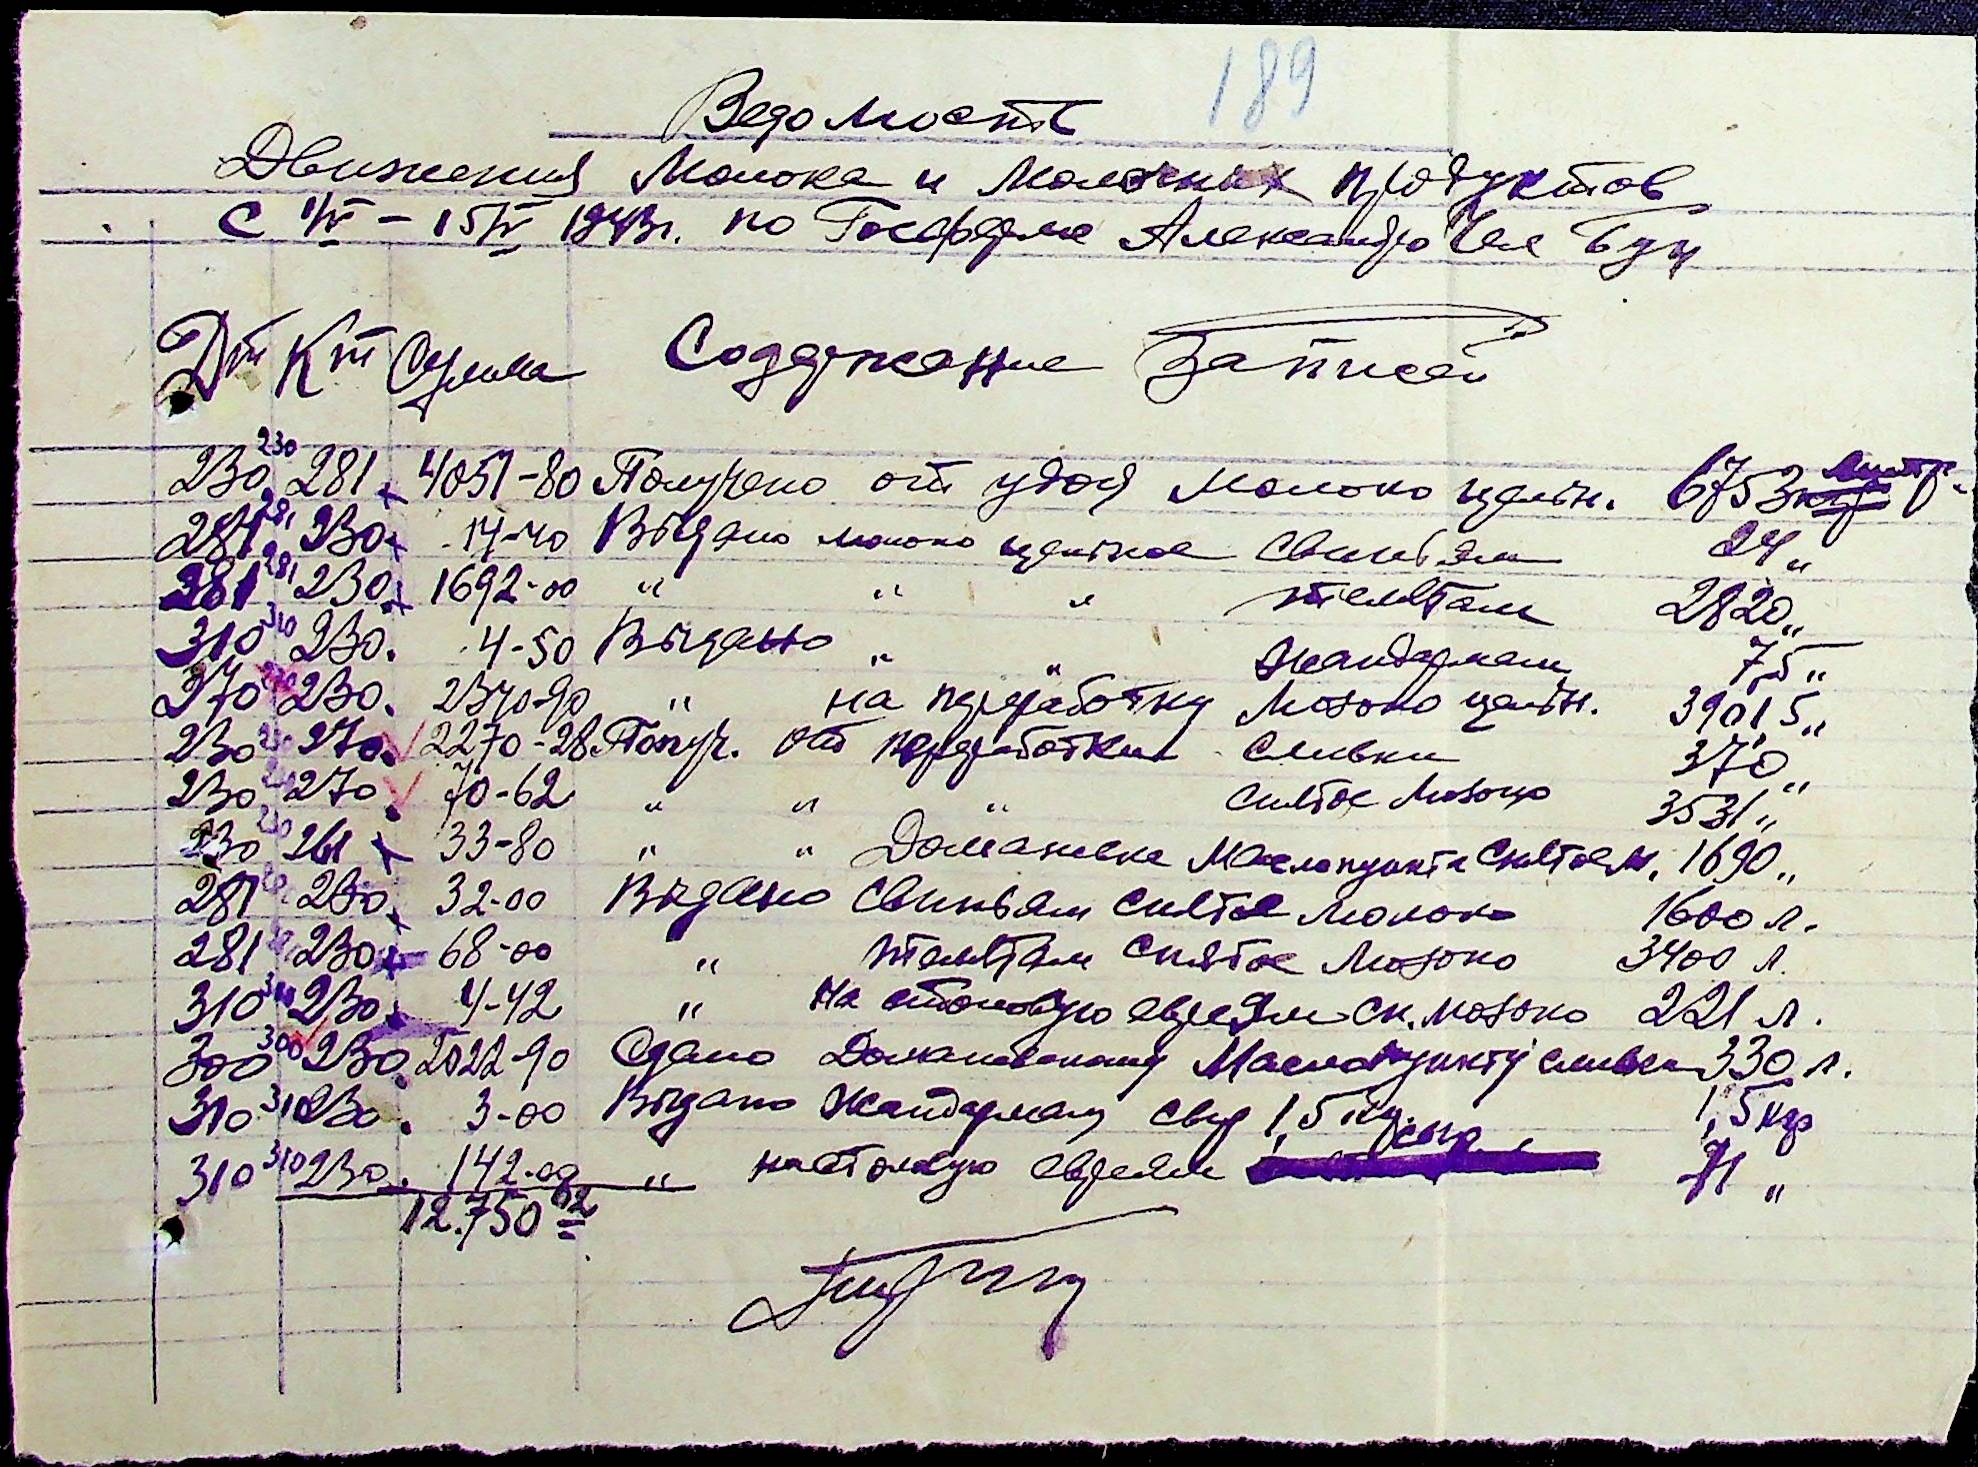 189
Ведомость
Движения Молока и Молочных продуктов
с 1/IV – 15/IV 1943г. по Госферме Александро
Дт Кт Сумма Содержание Записей
230 230 281 4051-80 Получено от удоя Молоко цельн. 6753 литр.
281 281 230 14-40 Выдано молоко цельное свиньям 24 "
281 281 230 1692-00 " " " телятам 2820 "
310 310 230. 4-50 Выдано " " Жандармам 7,5 "
270 270 230. 2340-90 " на переработку Молоко цельн. 3901,5 "
230 230 270. 2270-28 Получ. от переработки сливки 370 "
230 230 270. 70-62 " " " снятое Молоко 3531 "
230 230 261 33-80 " " Доманевка Маслопункта снятое м. 1690 "
281 281 230. 32-00 Выдано свиньям снятое молоко 1600 л.
281 281 230 68-00 " телятам снятое Молоко 3400 л.
310 310 230. 4-42 " На столовую евреям сн. молоко 221 л.
300 300 230. 2022-90 Сдано Доманевскому Маслопункту сливки 330 л.
310 310 230. 3-00 Выдано Жандармам сыр 1,5 кгр. 1,5 кгр
310 310 230. 142-00 " на столовую евреям сыр 71 "
12.750 62